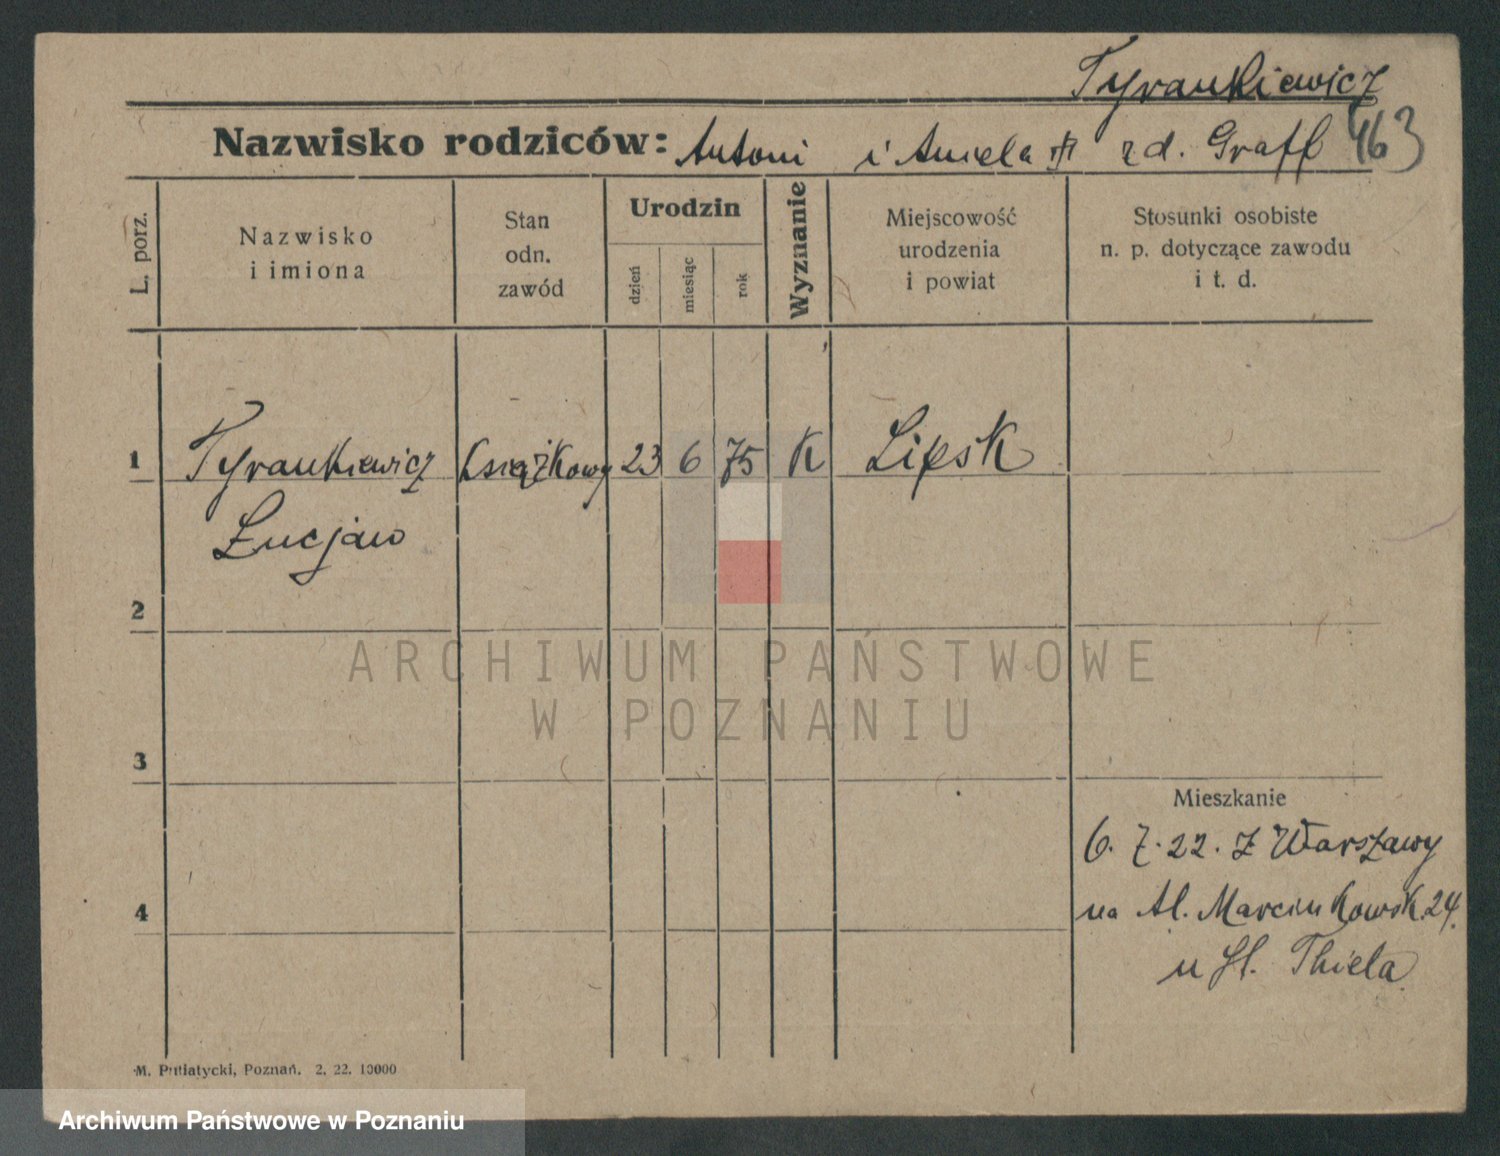 Tyrankiewicz
Nazwisko rodziców: Antoni i Aniela zd. Graff 463
L. porz.
Nazwisko
i imiona
Stan
odn.
zawód
Urodzin
dzień
miesiąc
rok
Wyznanie
Miejscowość
urodzenia
i powiat
Stosunki osobiste
n. p. dotyczące zawodu
i t. d.
1 Tyrankiewicz Książkowy 23 6 75 K Lipsk
Łucjan
2
ARCHIWUM PAŃSTWOWE
W POZNANIU
3
Mieszkanie
6. 7. 22. z Warszawy
4
na Al. Marcinkowsk. 24.
u Thiela
M. Putiatycki, Poznań. 2. 22. 10000
Archiwum Państwowe w Poznaniu